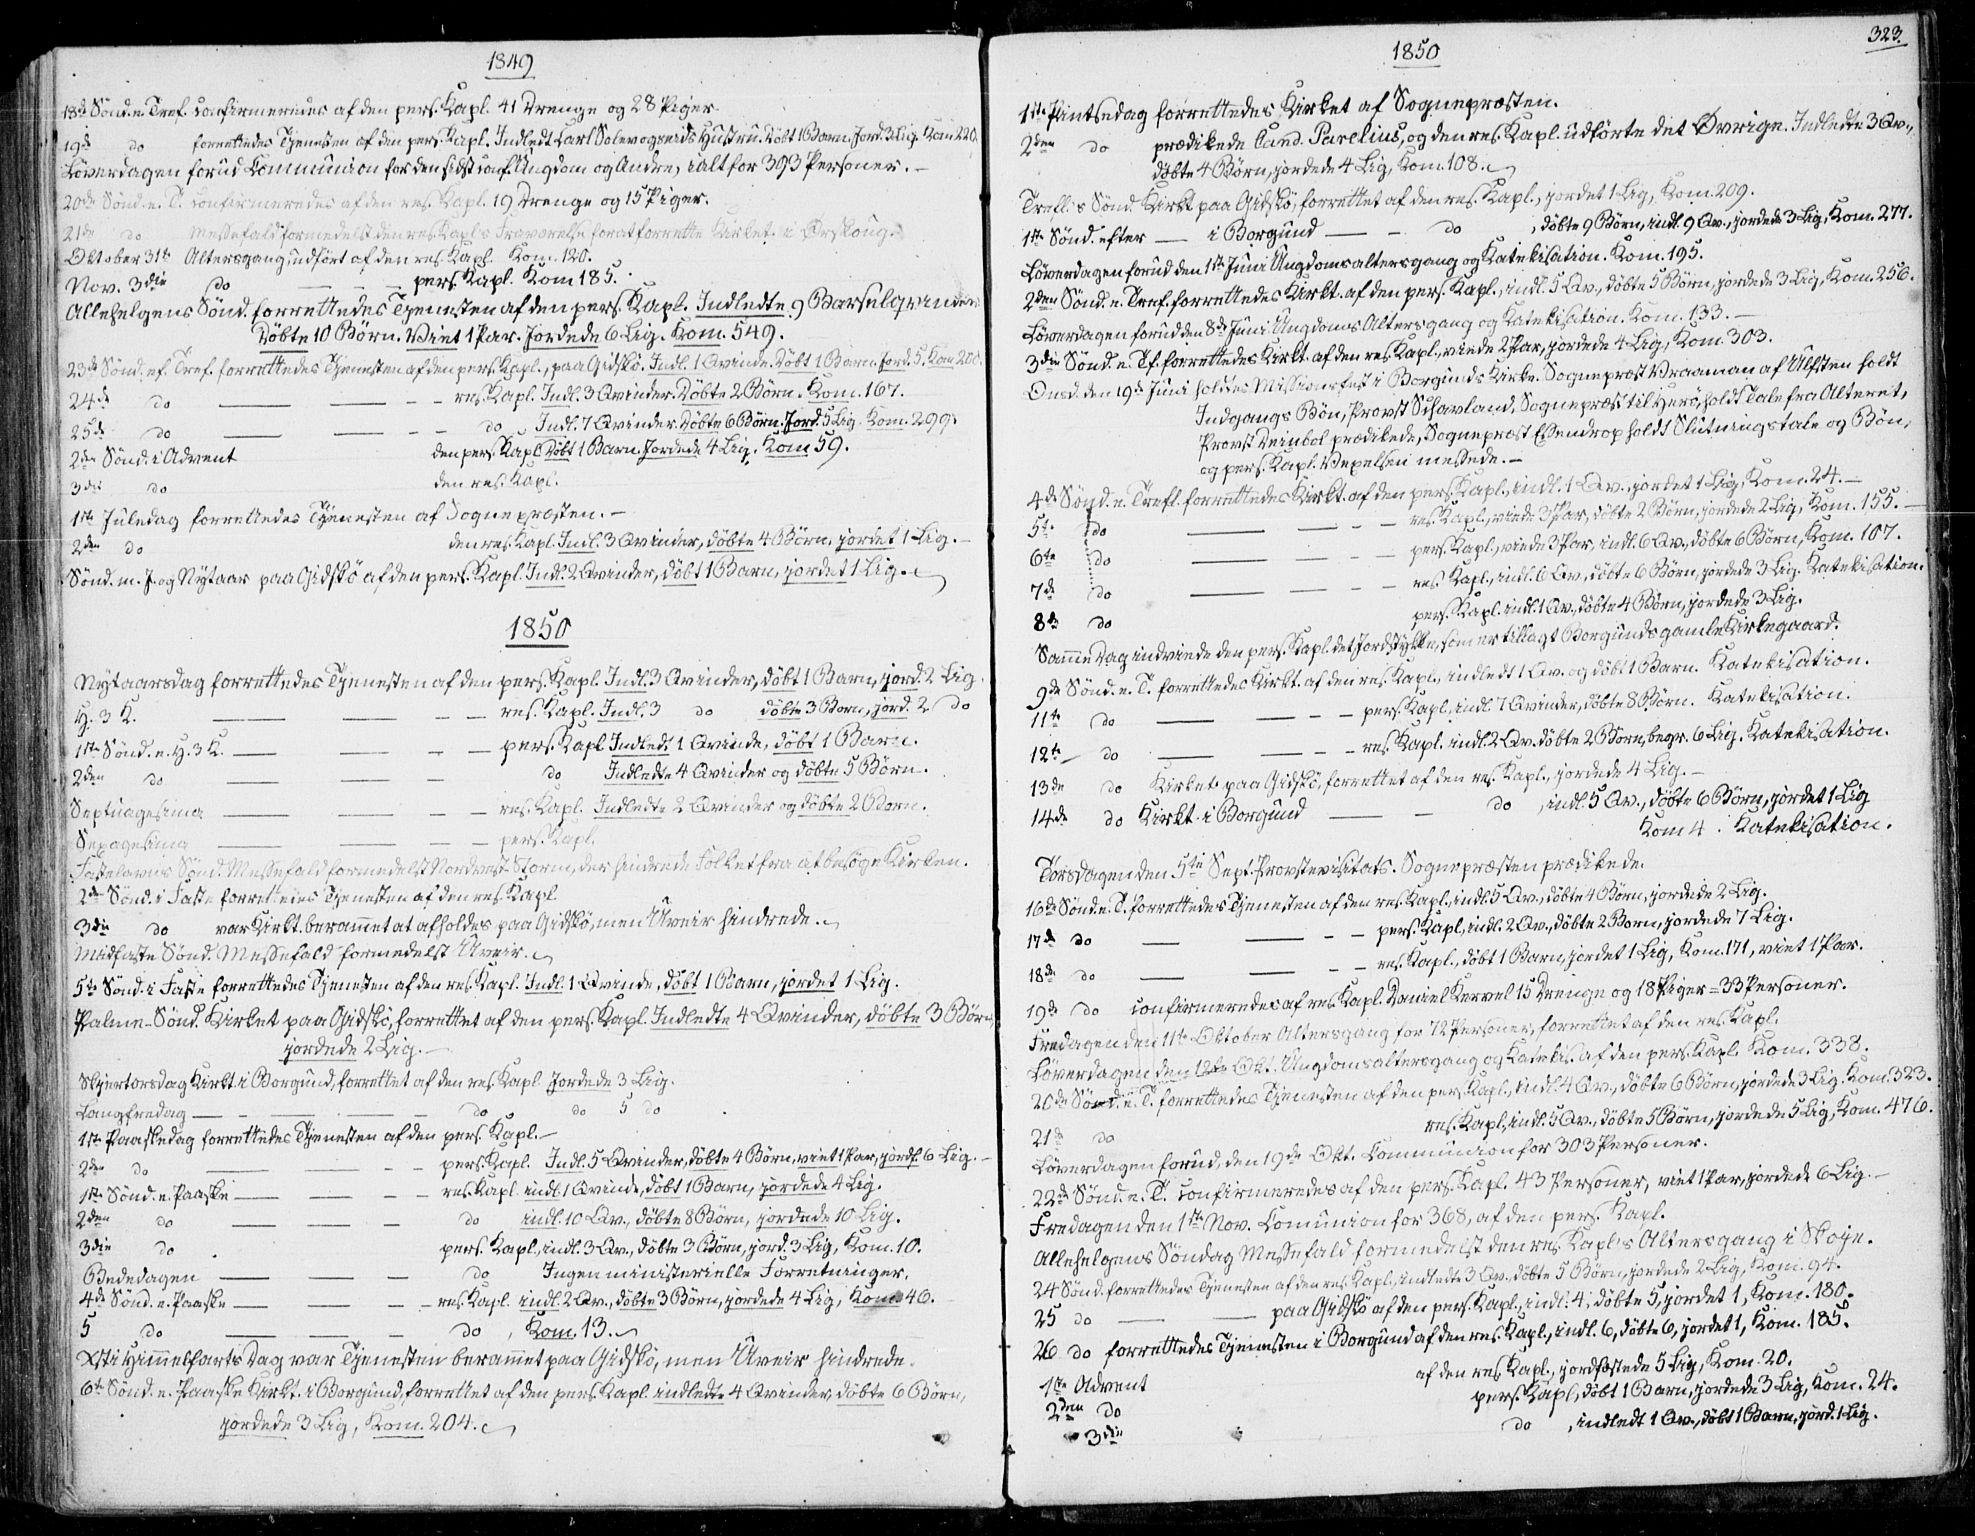 1849
18de Sönd. e. Tref. confirmeredes af den pers. Kapl. 41 Drenge og 28 Piger.
19de do forrettedes Tjenesten af den pers. Kapl. Indledt Carl Hustru. Döbt 1 Barn. Jord. 3 Lig. Kom 220.
Löverdagen forud Communion for den sidst conf. Ungdom og Andre, i alt for 393 Personer. –
20de Sönd. e. T. confirmeredes af den res. Kapl. 19 Drenge og 15 Piger.
21de do Messefald formedelst den res. Kapl's Fraværelse for at forrette Kirket. i Ørskoug.
Oktober 31te Altersgang, udfört af den res. Kapl. Kom. 120.
Nov. 3die do — — — pers. Kapl. Kom 185.
Allehelgens Sönd. forrettedes Tjenesten af den pers. Kapl. Indledte 9 Barselqvinder
Döbte 10 Börn. Viet 1 Par. Jordede 6 Lig. Kom. 549.
23de Sönd. ef. Tref. forrettedes Tjenesten af den pers. Kapl., paa Gidskö. Indl. 1 Qvinde. Döbt 1 Barn. Jord. 5. Kom 200.
24de do — — – – res. Kapl. Indl. 3 Qvinder. Döbte 2 Börn. Kom. 167.
25de do — — – – do Indl. 7 Qvinder. Döbte 6 Börn. Jord. 5 Lig. Kom. 299.
2den Sönd. i Advent den pers. Kapl. Döbt 1 Barn. Jordede 4 Lig. Kom 59.
3die do den res. Kapl.
1ste Juledag forrettedes Tjenesten af Sognepræsten. –
2den do den res. Kapl. Indl. 3 Qvinder, döbte 4 Börn, jordet 1 Lig. –
Sönd. m. J. og Nytaar paa Gidskö af den pers. Kapl. Indl. 2 Qvinder, döbt 1 Barn, jordet 1 Lig.
1850
Nytaarsdag forrettedes Tjenesten af den pers. Kapl. Indl. 3 Qvinder, döbt 1 Barn, jord. 2 Lig.
H. 3 K. — — – – res. Kapl. Indl. 3 do döbte 3 Born, jord. 2 do
1ste Sönd. e. H. 3 K. — — – – pers. Kapl Indledt 1 Qvinde, döbt 1 Barn.
2den do — — – do Indledte 4 Qvinder og döbte 5 Börn.
Septuagesima — — – – res. Kapl. Indledte 2 Qvinder og döbte 2 Born.
Sexagesima — — – – pers. Kapl.
Fastelavns Sönd. Messefald formedelst Nordvest-Storm, der hindrede Folket fra at besöge Kirken.
2den Sönd. i Faste forrettedes Tjenesten af den res. Kapl.
3die do var Kirkt. berammet at afholdes paa Gidskö, men Uveir hindrede.
Midfaste Sönd. Messefald formedelst Uveir.
5te Sönd. i Faste forrettedes Tjenesten af den res. Kapl. Indl. 1 Qvinde, döbt 1 Barn, jordet 1 Lig.
Palme-Sönd. Kirket paa Gidskö, forrettet af den pers. Kapl. Indledte 4 Qvinder, döbte 3 Börn,
jordede 2 Lig. –
Skjertorsdag Kirkt. i Borgund, forrettet af den res. Kapl. Jordede 3 Lig.
Langfredag — – — — – do do 5 do
1ste Paaskedag forrettedes Tjenesten af den pers. Kapl. –
2den do — — – – pers. Kapl. Indl. 5 Qvinder, döbte 4 Börn, viet 1 Par, jordf. 6 Lig. –
1ste Sönd. e. Paaske — — – – res. Kapl. indl. 1 Qvinde, döbt 1 Barn, jordede 4 Lig.
2den do — — – – do indl. 10 Qv., döbte 8 Börn, jordede 10 Lig.
3die do pers. Kapl., indl. 3 Qv., döbte 3 Börn, jord. 3 Lig, Kom. 10.
Bededagen — — – – do Ingen ministerielle Forretninger.
4de Sönd. e. Paaske — — – – res. Kapl. indl. 2 Qv., döbte 3 Börn, jordede 4 Lig, Kom. 46.
5 do — — – do, Kom. 13.
Xsti Himmelfarts Dag var Tjenesten berammet paa Gidskö, men Uveir hindrede.
6te Sönd. e. Paaske Kirkt. i Borgund, forrettet af den pers. Kapl. indledte 4 Qvinder, döbte 6 Börn,
jordede 3 Lig, Kom. 204.
323.
1850
1ste Pintsedag forrettedes Kirket af Sognepræsten.
2den do prædikede Cand. Parelius, og den res. Kapl. udförte det Øvrige. Indledte 3 Qv.,
döbte 4 Börn, jordede 4 Lig, Kom. 108.
Trefl.s Sönd. Kirkt paa Gidskö, forrettet af den res. Kapl., jordet 1 Lig, Kom. 209.
1ste Sönd. efter — i Borgund — – do, döbte 9 Börn, indl. 9 Qv., jordede 3 Lig, Kom. 277.
Löverdagen forud den 1ste Juni Ungdomsaltersgang og Katekisation. Kom. 195.
2den Sönd. e. Tref. forrettedes Kirkt. af den pers. Kapl., indl. 5 Qv., döbte 5 Börn, jordede 3 Lig, Kom. 256.
Löverdagen forud den 8de Juni Ungdoms Altersgang og Katekisation. Kom. 133. –
3die Sönd. e. Tf. forrettedes Kirkt. af den res. Kapl., viede 2 Par, jordede 4 Lig, Kom. 303.
Onsd. den 19de Juni holdtes Missionsfest i Borgunds Kirke. Sognepræst Vraaman af Ulfsten holdt
Indgangs Bön, Provst Schavland, Sognepræst til Herö, holdt Tale fra Alteret,
Provst Deinbol prædikede, Sognepræst Essendrop holdt Slutningstale og Bön,
og pers. Kapl. Vepelsen messede. –
4de Sönd. e. Trefl. forrettedes Kirkt. af den pers. Kapl., indl. 1 Qv., jordet 1 Lig, Kom. 24. –
5te do — — – – res. Kapl., viede 3 Par, döbte 2 Börn, jordede 2 Lig, Kom. 155. –
6te do — — – – pers. Kapl., viede 3 Par, indl. 6 Qv., döbte 6 Börn, Kom. 107.
7de do — — – – res. Kapl., indl. 6 Qv., döbte 6 Börn, jordede 3 Lig. Katekisation.
8de do pers. Kapl. indl. 1 Qv., döbte 4 Börn, jordede 3 Lig.
Samme Dag indviede den pers. Kapl. det Jordstykke, som er tillagt Borgunds gamle Kirkegaard.
9de Sönd. e. T. forrettedes Kirkt. af den res. Kapl., indledt 1 Qv. og döbt 1 Barn. Katekisation.
11te do — — – – pers. Kapl., indl. 7 Qvinder, döbte 8 Börn. Katekisation.
12te do — — – – res. Kapl. indl. 2 Qv. döbte 2 Börn, begr. 6 Lig. Katekisation.
13de do Kirket paa Gidskö, forrettet af den res. Kapl., jordede 4 Lig. –
14de do Kirkt. i Borgund — – do, indl. 5 Qv., döbte 6 Börn, jordet 1 Lig
Kom 4. Katekisation.
Torsdagen den 5te Sept. Provstevisitats. Sognepræsten prædikede.
16de Sönd. e. T. forrettedes Tjenesten af den res. Kapl., indl. 5 Qv., döbte 4 Börn, jordede 2 Lig.
17de do — — – – pers. Kapl, indl. 2 Qv., döbte 2 Born, jordede 7 Lig.
18de do — — – – res. Kapl., döbt 1 Barn, jordet 1 Lig, Kom. 171, viet 1 Par.
19de do confirmeredes af res. Kapl. Daniel Kerrel 15 Drenge og 18 Piger = 33 Personer.
Fredagen den 11te Oktober Altersgang for 72 Personer, forrettet af den res. Kapl.
Löverdagen den 12te Okt. Ungdomsaltersgang og Katekis. af den pers. Kapl. Kom. 338.
20de Sönd. e. T. forrettedes Tjenesten af den pers. Kapl., indl. 4 Qv., döbte 6 Börn, jordede 3 Lig. Kom. 323.
21de do res. Kapl., indl. 5 Qv., döbte 5 Börn, jordede 5 Lig, Kom. 476.
Löverdagen forud, den 19de Okt. Communion for 303 Personer.
22de Sönd. e. T. confirmeredes af den pers. Kapl. 43 Personer, viet 1 Par, jordede 6 Lig. –
Fredagen den 1ste Nov. Comunion for 368, af den pers. Kapl.
Allehelgens Söndag Messefald formedelst den res. Kapl's Altersgang i Skoje.
24 Sönd. forrettedes Tjenesten af den res. Kapl., indledte 3 Qv., döbte 5 Börn, jordede 2 Lig, Kom. 94.
25 do — — paa Gidskö af den pers. Kapl., indl: 4, döbte 5, jordet 1, Kom. 180.
26 do forrettedes Tjenesten i Borgund af den res. Kapl., indl. 6, döbte 6, jordet 1, Kom. 185.
1ste Advent af den res. Kapl., jordfæstede 5 Lig, Kom. 20.
2den do pers. Kapl, döbt 1 Barn, jordede 3 Lig, Kom. 24.
3die do, indledt 1 Qv., döbt 1 Barn, jord. 1 Lig.